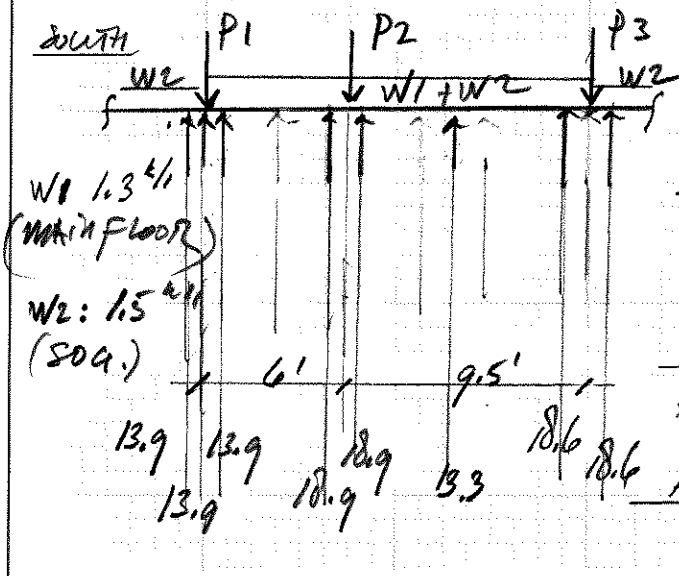 SOUTH
P1 P2 P3
W2 W1 + W2 W2
W1 1.3 k/1
(MAIN FLOOR)
W2: 1.5 k/1
(SOG.)
6' 9.5'
13.9 13.9 18.9 18.6
13.9 18.9 13.3 18.6